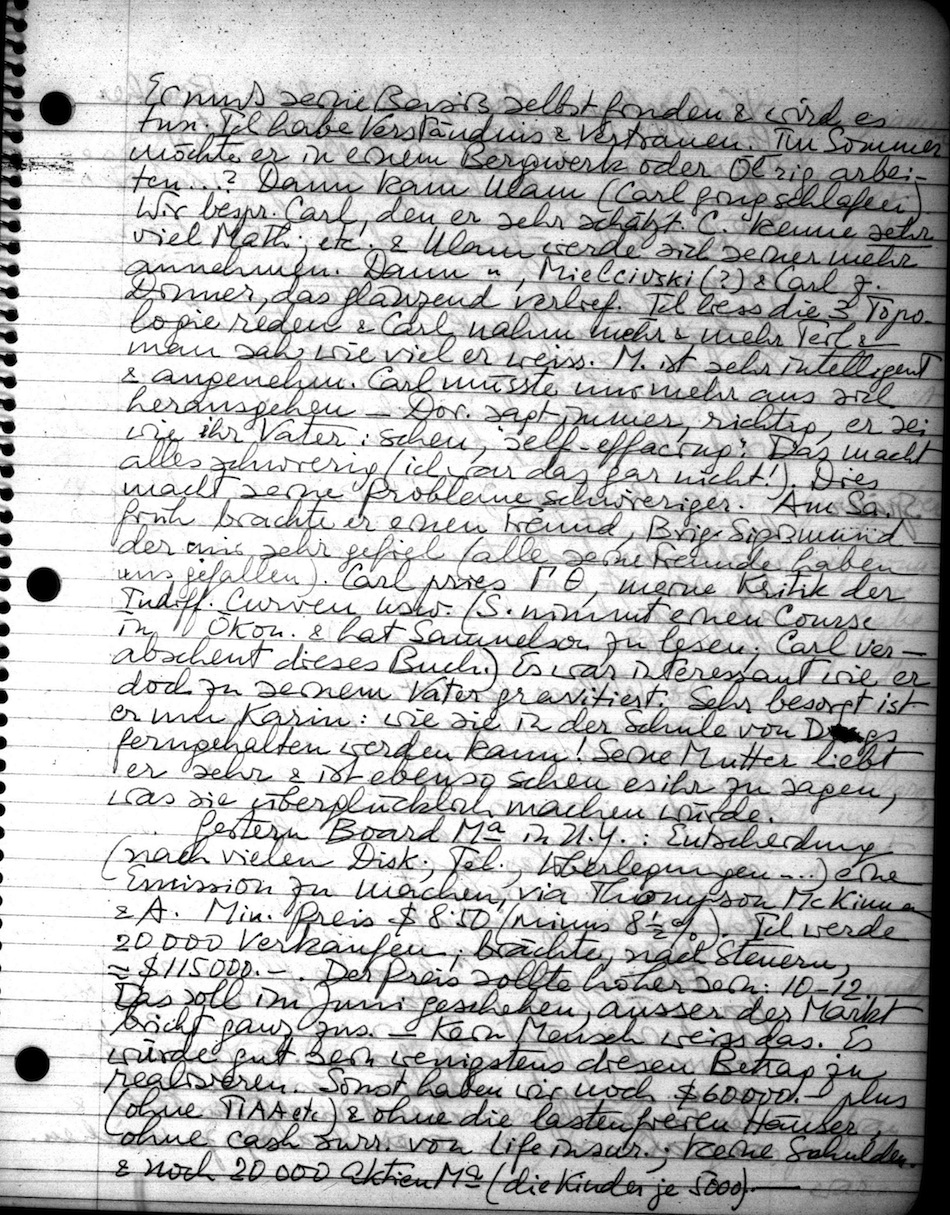 Er muss seine Basis selbst finden & wird es
tun. Ich habe Verständnis & Vertrauen. Im Sommer
möchte er in einem Bergwerk oder Öl rig arbei-
ten...? Dann kam Ulam (Carl ging schlafen)
Wir bespr. Carl, den er sehr schätzt. C. kenne sehr
viel Math., etc. & Ulam werde sich seiner mehr
annehmen. Dann ", Mielcivski (?) & Carl z.
Dinner, das glänzend verlief. Ich liess die 3 Topo-
logie reden & Carl nahm mehr & mehr Teil &
man sah wie viel er weiss. M. ist sehr intelligent
& angenehm. Carl müsste nur mehr aus sich
herausgehen – Dor. sagt immer, richtig, er sei
wie ihr Vater: scheu, "self-effacing". Das macht
alles schwierig (ich war das gar nicht!). Dies
macht seine Probleme schwieriger. Am Sa.
früh brachte er einen Freund, Brig. Sigismund
der mir sehr gefiel (alle seine Freunde haben
uns gefallen). Carl pries Γ Θ, meine Kritik der
Indiff. Curven usw. (S. nimmt einen Course
in Ökon. & hat Samuelson zu lesen; Carl ver-
abscheut dieses Buch.) Es war interessant wie er
doch zu seinem Vater gravitiert. Sehr besorgt ist
er um Karin: wie sie in der Schule von Drugs
ferngehalten werden kann! Seine Mutter liebt
er sehr & ist ebenso scheu es ihr zu sagen,
was sie überglücklich machen würde.
Gestern Board Ma in N.Y.: Entscheidung
(nach vielen Disk., Tel., Überlegungen...) eine
Emission zu machen, via Thompson McKinnon
& A. Min. Preis $ 8.50 (minus 8½%). Ich werde
20 000 verkaufen; brächte, nach Steuern,
≈ $115 000.–. Der Preis sollte höher sein: 10–12.
Das soll im Juni geschehen, ausser der Markt
bricht ganz zus. – Kein Mensch weiss das. Es
würde gut sein wenigstens diesen Betrag zu
realisieren. Sonst haben wir noch $60 000.– plus
(ohne TIAA etc) & ohne die lastenfreien Häuser,
ohne cash surr. von life insur.; keine Schulden.
& noch 20 000 Aktien Ma (die Kinder je 5000).–